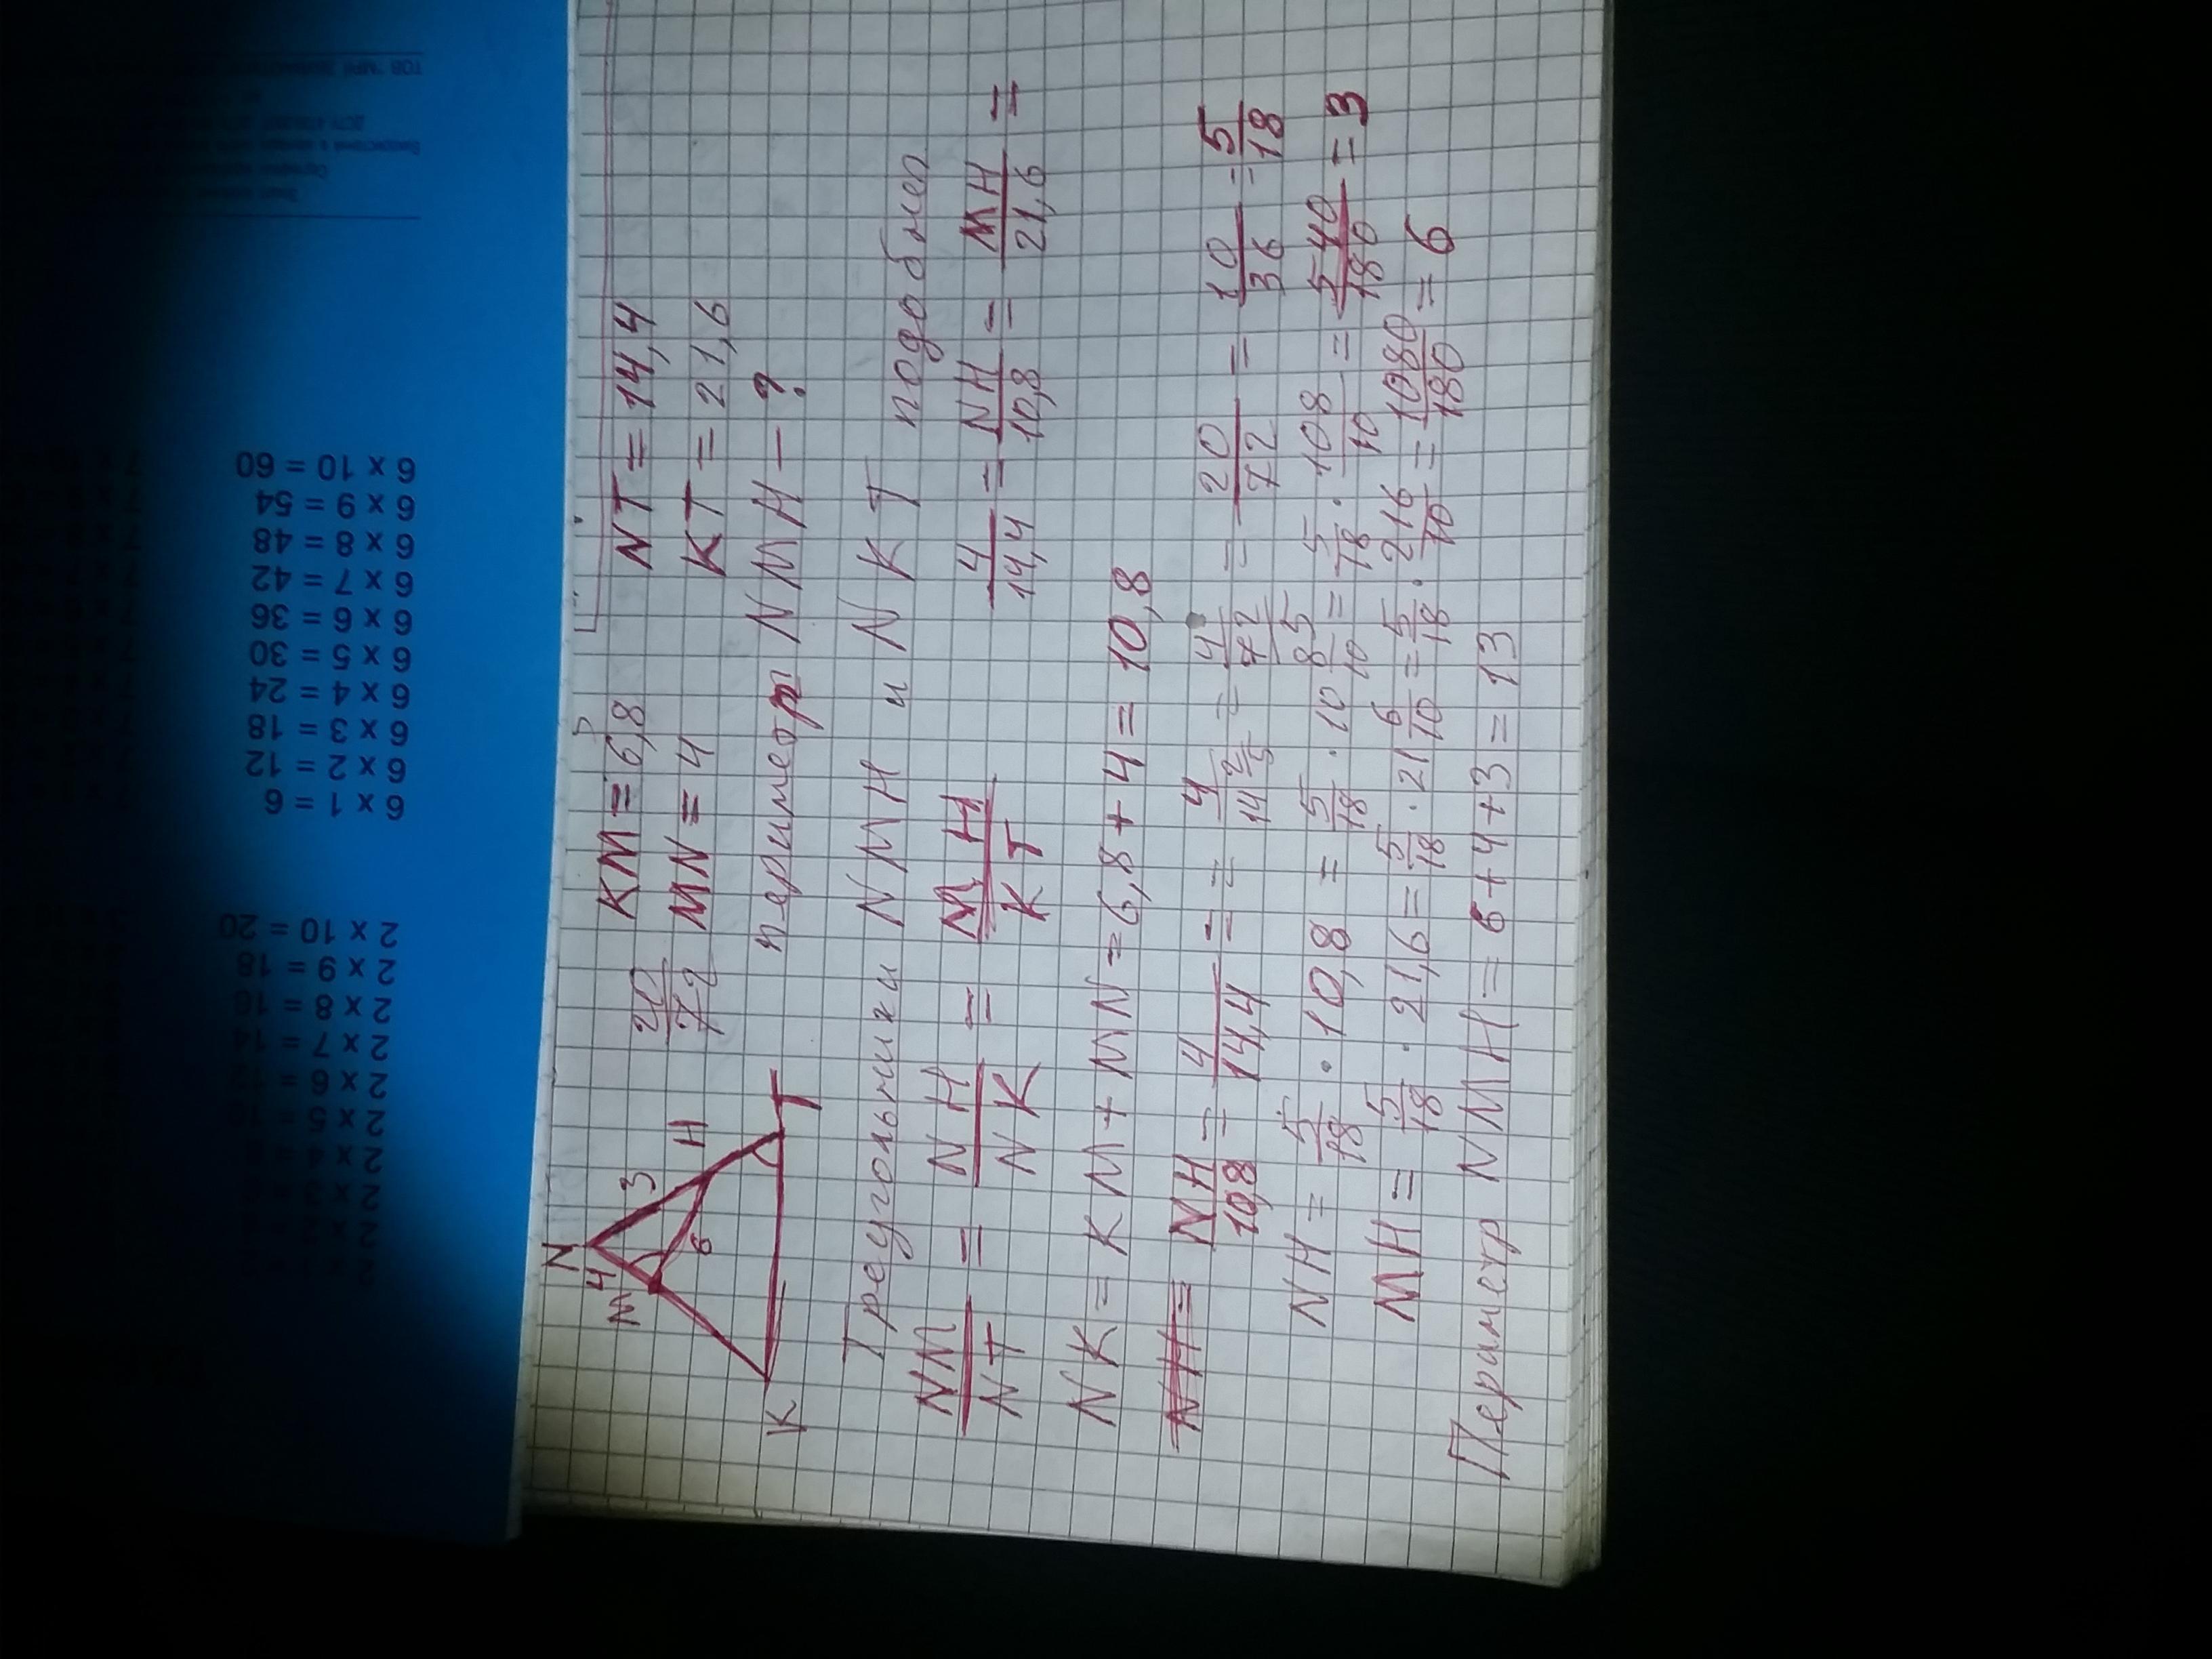 6 x 1 = 6
6 x 2 = 12
6 x 3 = 18
6 x 4 = 24
6 x 5 = 30
6 x 6 = 36
6 x 7 = 42
6 x 8 = 48
6 x 9 = 54
6 x 10 = 60
2 x 4 =
2 x 5 = 10
2 x 6 = 12
2 x 7 = 14
2 x 8 = 16
2 x 9 = 18
2 x 10 = 20
N
4
3
M
6
H
K
T
20/72
KM = 6,8
NT = 14,4
MN = 4
KT = 21,6
периметр NMH - ?
Треугольники NMH и NKT подобны
NM/NT = NH/NK = MH/KT
4/14,4 = NH/10,8 = MH/21,6 =
NK = KM + MN = 6,8 + 4 = 10,8
NH/10,8 = 4/14,4 = = 4/14 2/5 = 4/72/5 = 20/72 = 10/36 = 5/18
NH = 5/18 · 10,8 = 5/18 · 10 8/10 = 5/18 · 108/10 = 540/180 = 3
MH = 5/18 · 21,6 = 5/18 · 21 6/10 = 5/18 · 216/10 = 1080/180 = 6
Периметр NMH = 6 + 4 + 3 = 13